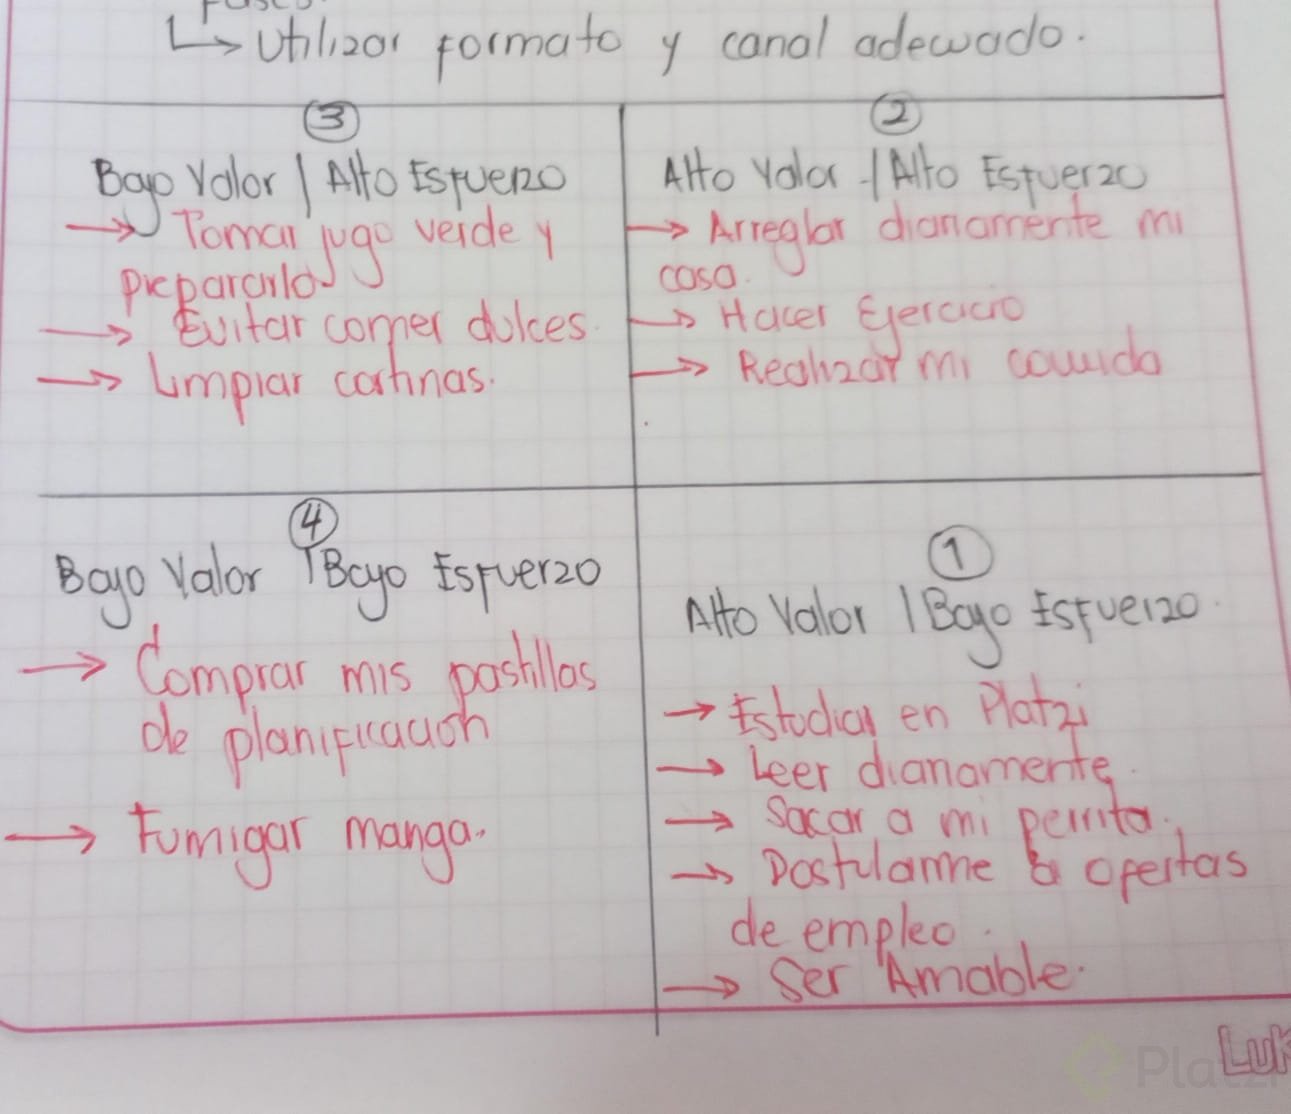 ↳ Utilizar formato y canal adecuado.
③
Bajo Valor | Alto Esfuerzo
→ Tomar jugo verde y
prepararlo
→ Evitar comer dulces.
→ Limpiar cortinas.
②
Alto Valor | Alto Esfuerzo
→ Arreglar diariamente mi
casa.
→ Hacer Ejercicio
→ Realizar mi comida
④
Bajo Valor | Bajo Esfuerzo
→ Comprar mis pastillas
de planificación
→ Fumigar manga.
①
Alto Valor | Bajo Esfuerzo.
→ Estudiar en Platzi
→ Leer diariamente.
→ Sacar a mi perrita.
→ Postularme a ofertas
de empleo.
→ Ser Amable.
Platzi